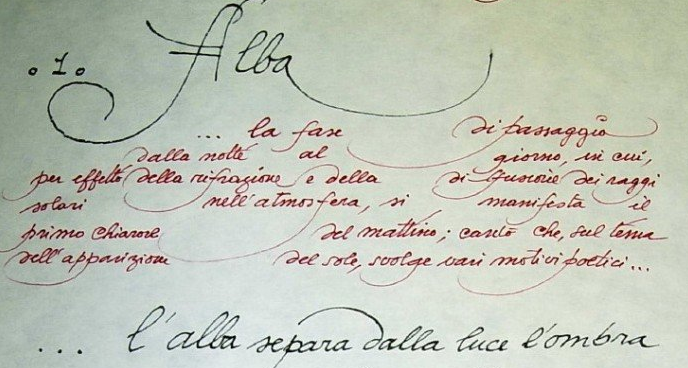 . 1 .
Alba
... la fase di passaggio
dalla notte al giorno, in cui,
per effetto della rifrazione e della difusione dei raggi
solari nell'atmosfera, si manifesta il
primo chiarore del mattino; canto che, sul tema
dell'apparizione del sole, svolge vari motivi poetici...
... l'alba separa dalla luce l'ombra